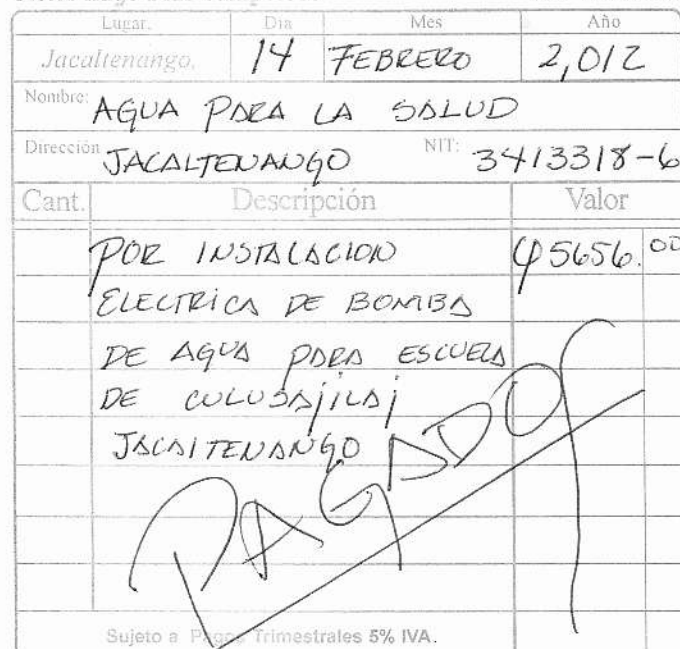 Lugar. Día Mes Año
Jacaltenango, 14 FEBRERO 2,012
Nombre: AGUA PARA LA SALUD
Dirección JACALTENANGO NIT: 3413318-6
Cant. Descripción Valor
POR INSTALACION Q5656.00
ELECTRICA DE BOMBA
DE AGUA PARA ESCUELA
DE
JACALTENANGO
PAGADO
Sujeto a Pagos Trimestrales 5% IVA.